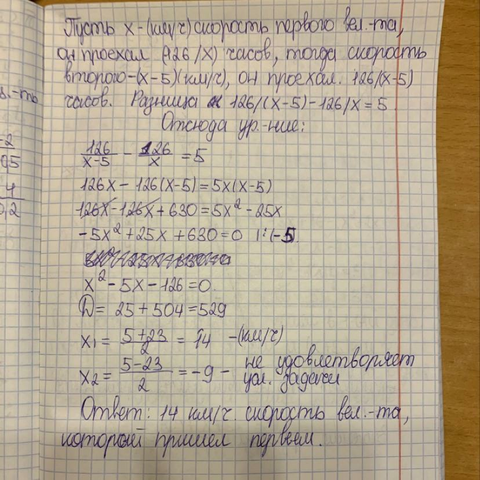 Пусть x - (км/ч) скорость первого вел.-та,
он проехал (126/x) часов, тогда скорость
второго - (x-5)(км/ч), он проехал 126/(x-5)
часов. Разница 126/(x-5) - 126/x = 5
Отсюда ур.-ние:
126/(x-5) - 126/x = 5
126x - 126(x-5) = 5x(x-5)
126x - 126x + 630 = 5x² - 25x
-5x² + 25x + 630 = 0 |:(-5)
x² - 5x - 126 = 0
D = 25 + 504 = 529
x₁ = (5+23)/2 = 14 - (км/ч)
x₂ = (5-23)/2 = -9 - не удовлетворяет
усл. задачи
Ответ: 14 км/ч. скорость вел.-та,
который пришел первым.